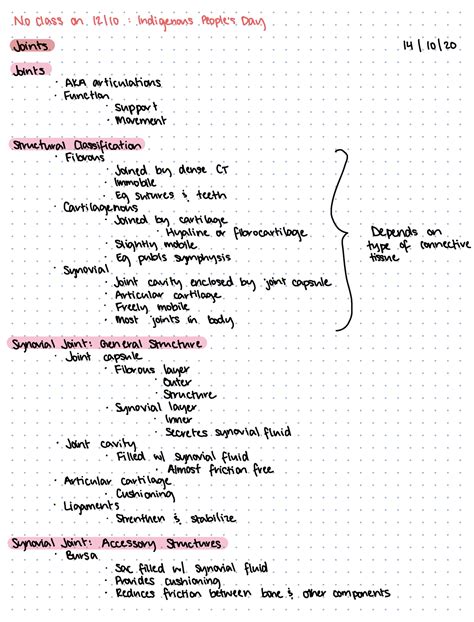 No Class on 12/10 : Indigenous People's Day
Joints 14/10/20
Joints
· AKA articulations
· Function
· Support
· Movement
Structural Classification
· Fibrous
· Joined by dense CT
· Immobile
· Eg sutures & teeth
· Cartilagenous
· Joined by cartilage
· Hyaline or fibrocartilage
· Slightly mobile
· Eg pubis symphysis
· Synovial
· Joint cavity enclosed by joint capsule
· Articular cartilage
· Freely mobile
· Most joints in body
Depends on
type of connective
tissue
Synovial Joint: General Structure
· Joint capsule
· Fibrous layer
· Outer
· Structure
· Synovial layer
· Inner
· Secretes synovial fluid
· Joint cavity
· Filled w/ synovial fluid
· Almost friction free
· Articular cartilage
· Cushioning
· Ligaments
· Strenthen & stabilize
Synovial Joint: Accessory Structures
· Bursa
· Sac filled w/ synovial fluid
· Provides cushioning
· Reduces friction between bone & other components